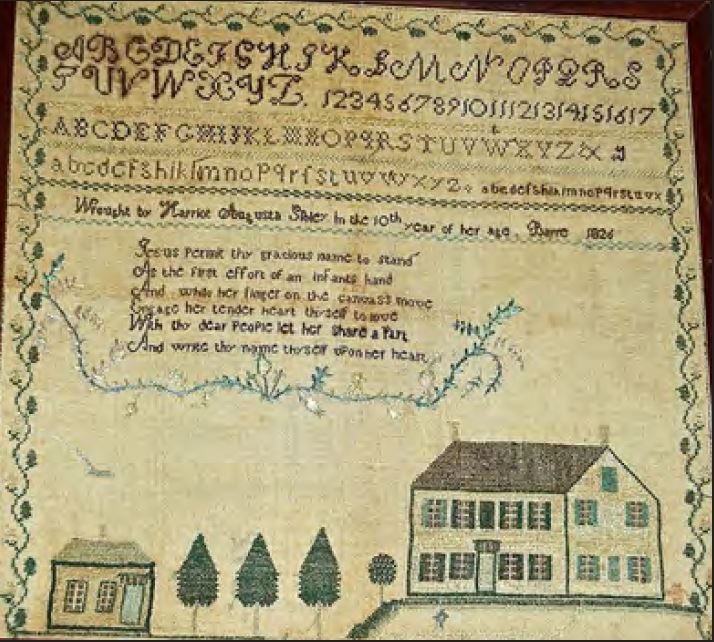 ABCDEFGHIJKLMNOPQRS
TUVWXYZ. 1234567891011121314151617
ABCDEFGHIJKLMNOPQRSTUVWXYZ&
abcdefghiklmnopqrſstuvwxyz. abcdefghiklmnopqrstuvx
Wrought by Harriot Augusta Sibley In the 10th year of her age. Barre 1826
Jesus permit thy gracious name to stand
As the first effort of an infants hand
And while her finger on the canvass move
Engage her tender heart thyself to love
With thy dear People let her share a Part
And write thy name thyself upon her heart